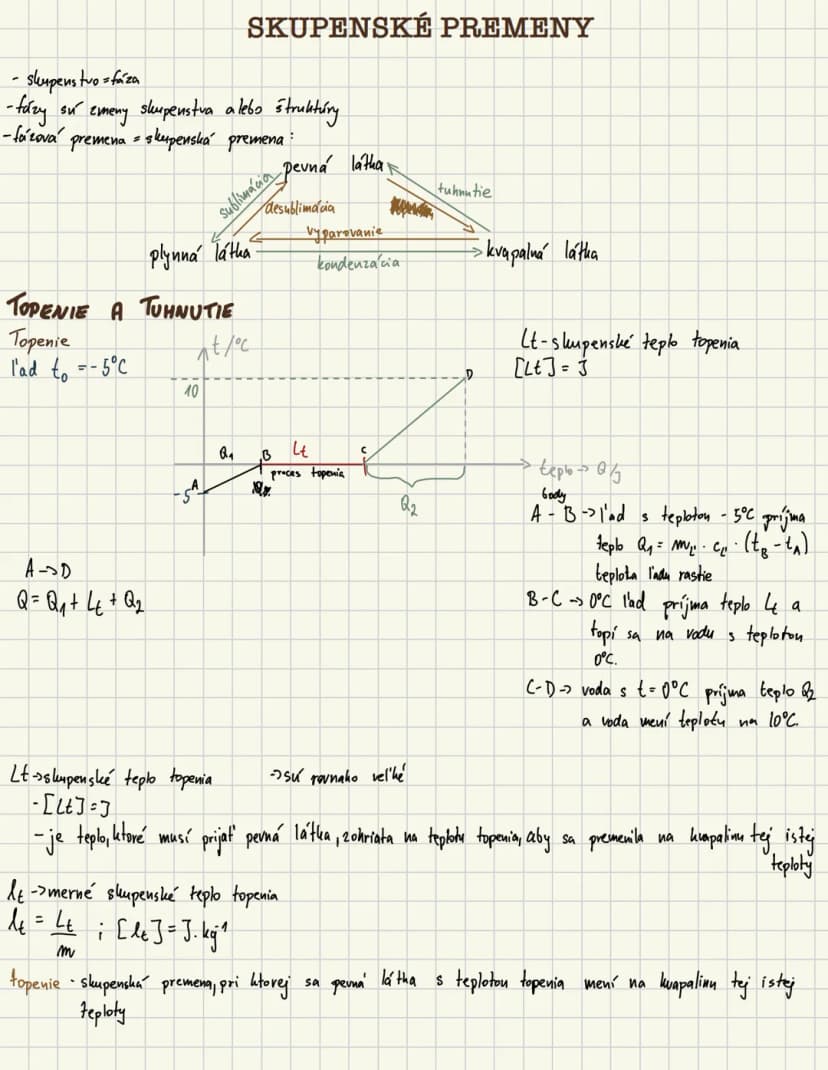 SKUPENSKÉ PREMENY
- skupenstvo = fáza
- fázy sú zmeny skupenstva alebo štruktúry
- fázová premena = skupenská premena:
pevná látka
sublimácia
tuhnutie
desublimácia
vyparovanie
plynná látka
kvapalná látka
kondenzácia
TOPENIE A TUHNUTIE
Topenie
ľad t₀ = -5°C
t/°C
10
D
Q₁
B
Lt
C
proces topenia
-5
A
Q₂
teplo → Q/J
Lt - skupenské teplo topenia
[Lt] = J
body
A - B -> ľad s teplotou - 5°C príjma
teplo Q₁ = mľ · cľ · (tB - tA)
teplota ľadu rastie
B-C -> 0°C ľad príjma teplo Lt a
topí sa na vodu s teplotou
0°C.
C-D -> voda s t = 0°C príjma teplo Q₂
a voda mení teplotu na 10°C.
A -> D
Q = Q₁ + Lt + Q₂
Lt -> skupenské teplo topenia -> sú rovnako veľké
- [Lt] = J
- je teplo, ktoré musí prijať pevná látka, zohriata na teplotu topenia, aby sa premenila na kvapalinu tej istej
teploty
lt -> merné skupenské teplo topenia
lt = Lt/m ; [lt] = J.kg⁻¹
topenie - skupenská premena, pri ktorej sa pevná látka s teplotou topenia mení na kvapalinu tej istej
teploty